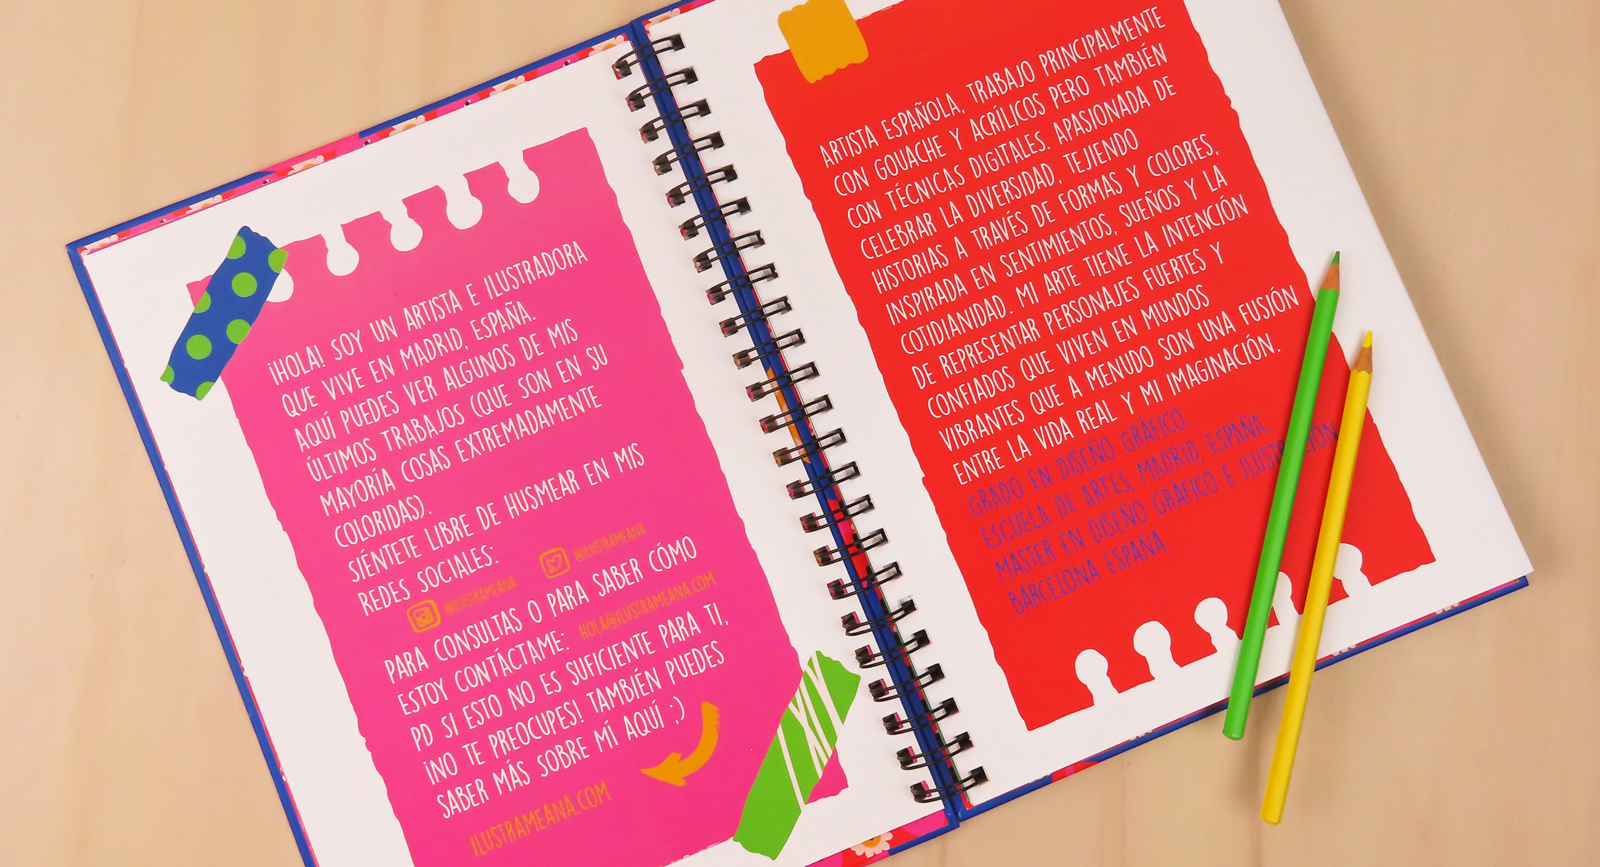 ¡HOLA! SOY UN ARTISTA E ILUSTRADORA
QUE VIVE EN MADRID, ESPAÑA.
AQUÍ PUEDES VER ALGUNOS DE MIS
ÚLTIMOS TRABAJOS (QUE SON EN SU
MAYORÍA COSAS EXTREMADAMENTE
COLORIDAS).
SIÉNTETE LIBRE DE HUSMEAR EN MIS
REDES SOCIALES:
@ILUSTRAMEANA @ILUSTRAMEANA
PARA CONSULTAS O PARA SABER CÓMO
ESTOY CONTÁCTAME: HOLA@ILUSTRAMEANA.COM
PD SI ESTO NO ES SUFICIENTE PARA TI,
¡NO TE PREOCUPES! TAMBIÉN PUEDES
SABER MÁS SOBRE MÍ AQUÍ ;)
ILUSTRAMEANA.COM
ARTISTA ESPAÑOLA, TRABAJO PRINCIPALMENTE
CON GOUACHE Y ACRÍLICOS PERO TAMBIÉN
CON TÉCNICAS DIGITALES. APASIONADA DE
CELEBRAR LA DIVERSIDAD, TEJIENDO
HISTORIAS A TRAVÉS DE FORMAS Y COLORES,
INSPIRADA EN SENTIMIENTOS, SUEÑOS Y LA
COTIDIANIDAD. MI ARTE TIENE LA INTENCIÓN
DE REPRESENTAR PERSONAJES FUERTES Y
CONFIADOS QUE VIVEN EN MUNDOS
VIBRANTES QUE A MENUDO SON UNA FUSIÓN
ENTRE LA VIDA REAL Y MI IMAGINACIÓN.
GRADO EN DISEÑO GRÁFICO.
ESCUELA DE ARTES. MADRID, ESPAÑA.
MASTER EN DISEÑO GRÁFICO E ILUSTRACIÓN
BARCELONA ESPAÑA.